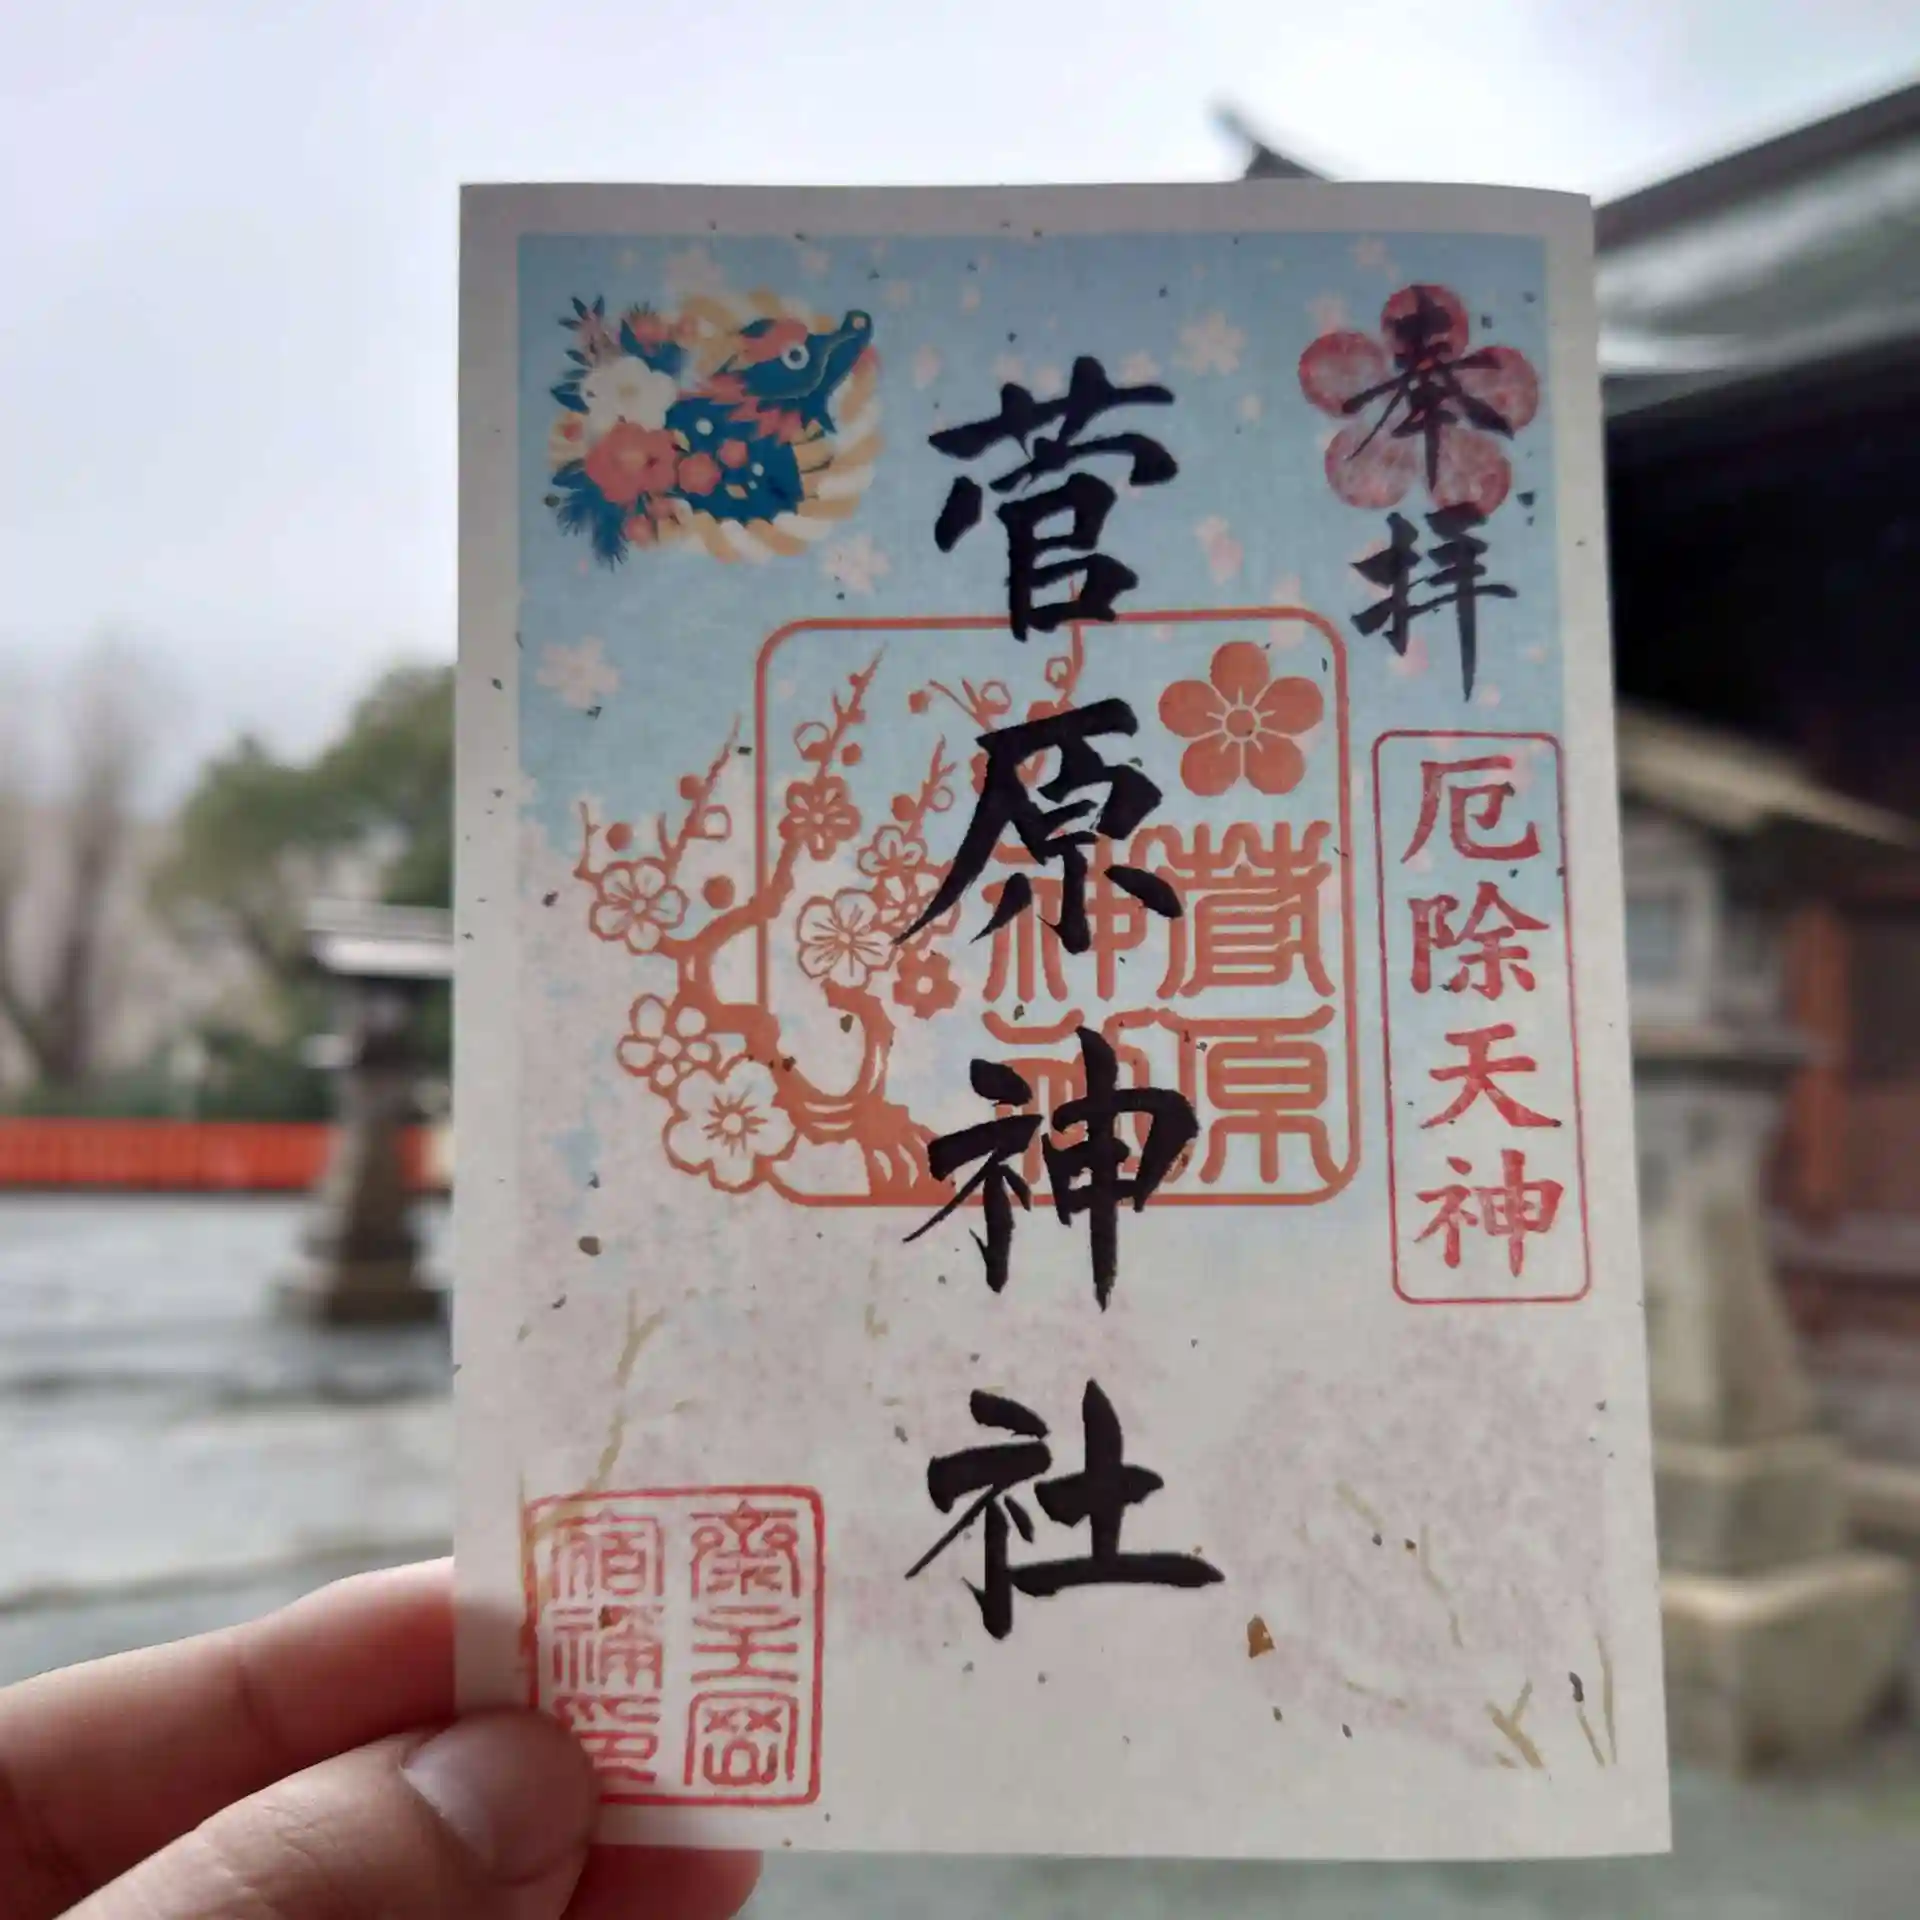 奉拝
厄除天神
菅原神社
菅原神社